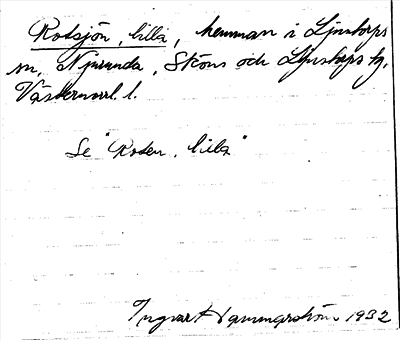 Rotsjön, lilla, hemman i Ljustorps
sn, Njurunda, Sköns och Ljustorps tg.
Västernorrl. l.
Se "Roten, lilla"
Ingvar Hammarström 1932